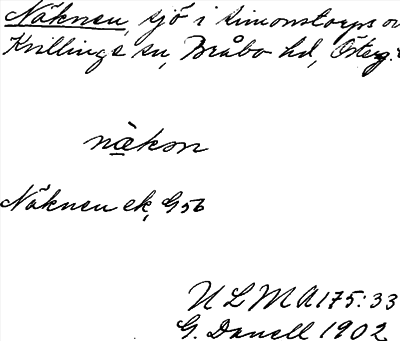 Näknen, sjö i Simonstorps o
Kvillinge sn, Bråbo hd, Österg.
näkon
Näknen ek, G56
ULMA 175:33
G. Danell 1902